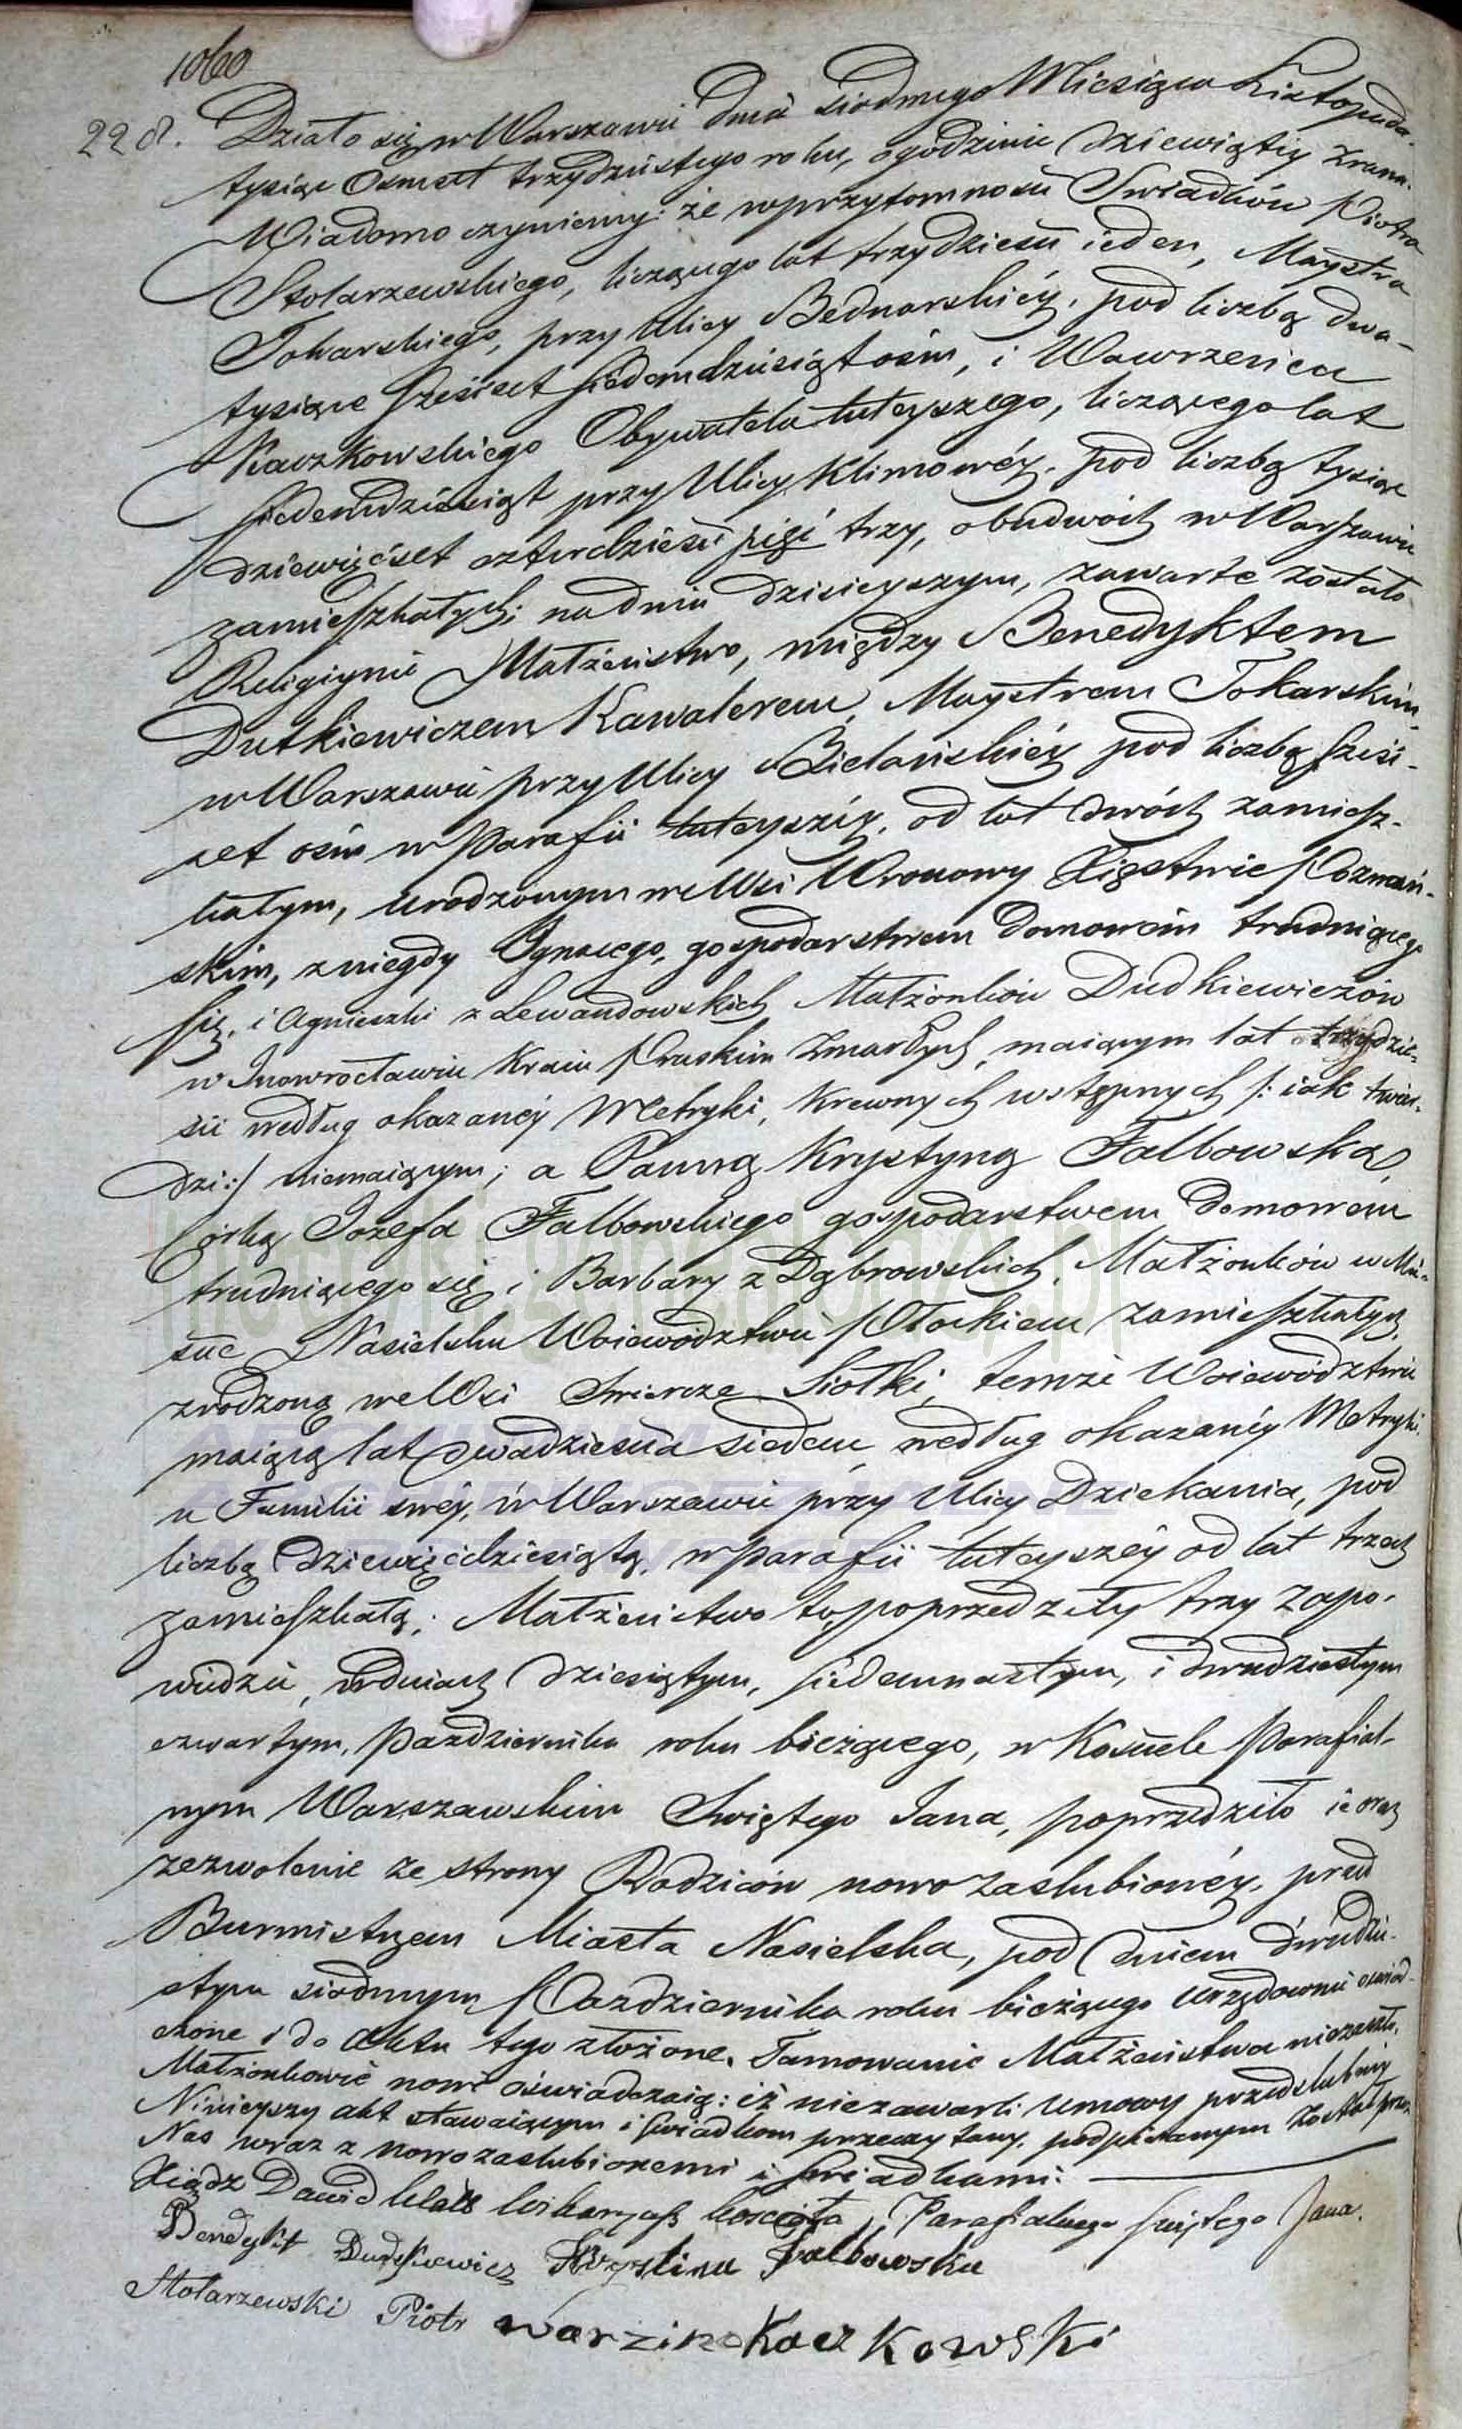 1060
228. Działo się w Warszawie dnia siódmego Miesiąca Listopada
tysiąc Osmset trzydziestego roku, o godzinie dziewiątéy zrana.
Wiadomo czyniemy: że w przytomności Swiadków Piotra
Stolarzewskiego, liczącego lat trzydzieści ieden, Maystra
Tokarskiego, przy Ulicy Bednarskiéy, pod liczbą dwa-
tysiące sześćset siedemdziesiąt ośm, i Wawrzenca
Kaczkowskiego Obywatela tuteyszego, liczącego lat
siedemdziesiąt przy Ulicy Klimowéy, pod liczbą tysiąc
dziewięćset czterdzieści pięć trzy, obudwóch w Warszawie
zamieszkałych; na dniu dzisieyszym, zawarte zostało
Religiynie Małżeństwo, między Benedyktem
Dutkiewiczem Kawalerem, Maystrem Tokarskim,
w Warszawie przy Ulicy Bielańskiéy pod liczbą sześć-
set ośm w Parafii tuteyszéy, od lat dwóch zamiesz-
kałym, urodzonym we Wsi Wronowy Xięstwie Poznań-
skim, z niegdy Ignacego, gospodarstwem Domowém trudniącego
się, i Agnieszki z Lewandowskich Małżonków Dudkiewiczów
w Inowrocławiu Kraiu Pruskim zmarłych, maiącym lat trzydzie-
ści według okazanéy Metryki, Krewnych wstępnych /: iak twier-
dzi :/ niemaiącym; a Panną Krystyną Falbowską,
Córką Jozefa Falbowskiego gospodarstwem Domowem
trudniącego się i Barbary z Dąbrowskich, Małżonków w Mie-
ście Nasielsku Woiewództwie Płockiem zamieszkałych,
zrodzoną we Wsi Swiercze Siołki, temże Woiewództwie
maiącą lat dwadzieścia siedem, według okazanéy Metryki,
u Familii swéy, w Warszawie przy Ulicy Dziekania, pod
liczbą dziewięćdziesiątą, w parafii tuteyszéy od lat trzech
zamieszkałą; Małżeństwo to, poprzedziły trzy zapo-
wiedzie, w dniach dziesiątym, siedemnastym, i dwudziestym
czwartym, Pazdziernika roku bieżącego, w Kościele Parafial-
nym Warszawskim Swiętego Jana, poprzedziło ie oraz
zezwolenie ze strony Rodziców nowo zaslubionéy, przed
Burmistrzem Miasta Nasielska, pod dniem dwudzie-
stym siódmym Pazdziernika roku bieżącego urzędownie oświad-
czone i do Aktu tego złożone. Tamowanie Małżeństwa niezaszło.
Małżonkowie nowi oświadczaią: iż niezawarli umowy przedslubnéy
Ninieyszy akt stawaiącym i swiadkom przeczytany, podpisanym został przez
Nas wraz z nowozaslubionemi i swiadkami.
Xiądz Dawid Wikaryusz koscioła Parafialnego swiętego Jana.
Benedykt Dudkiewicz Krystina Falbowska
Stolarzewski Piotr Warzinc Kaczkowski